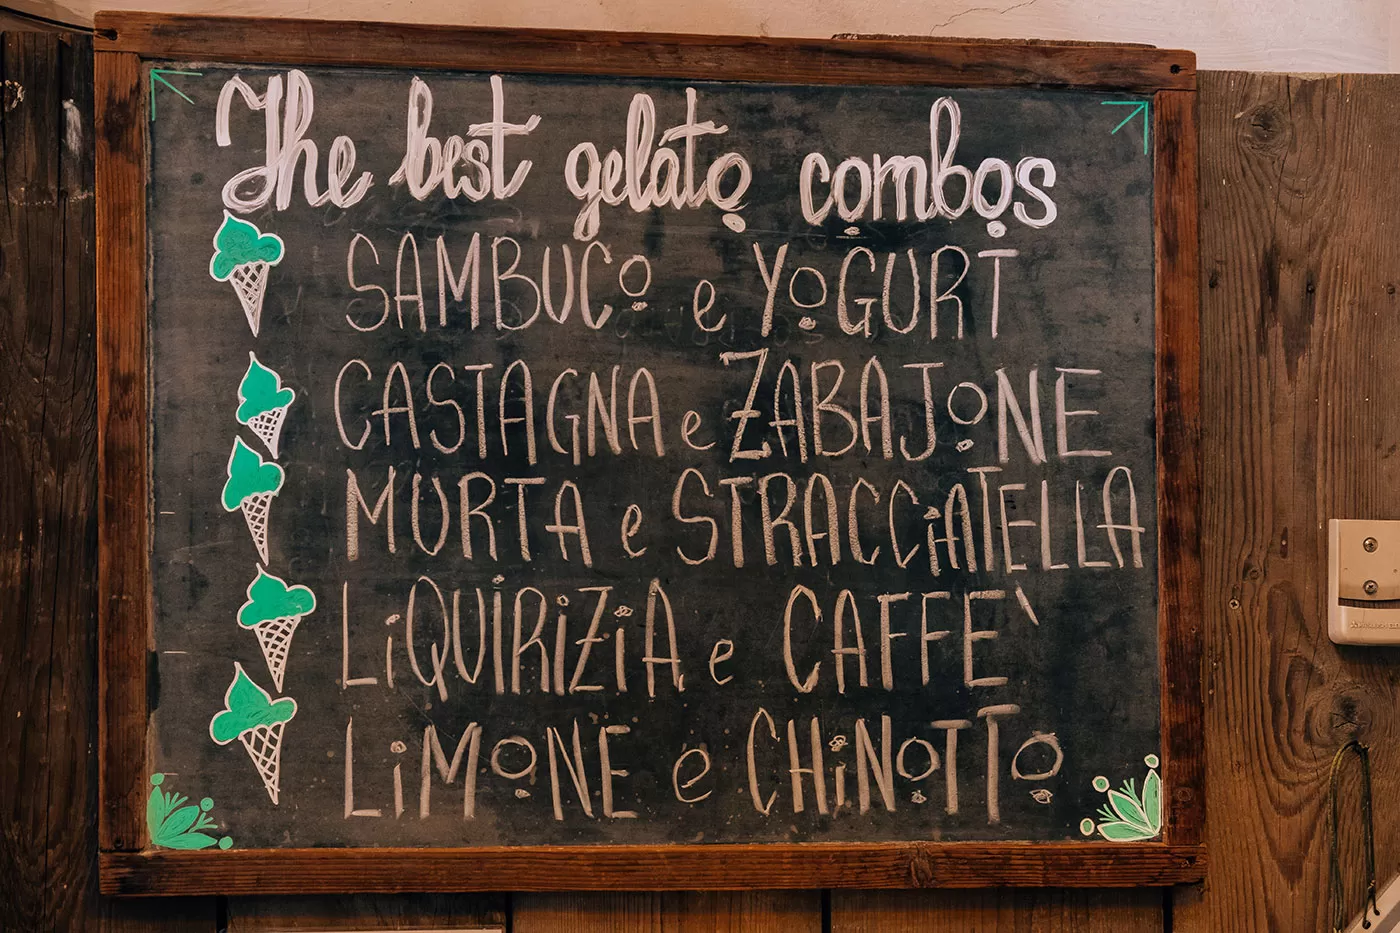 The best gelato combos
SAMBUCO e YOGURT
CASTAGNA e ZABAJONE
MURTA e STRACCiATELLA
LiQUiRiZiA e CAFFE`
LiMONE e CHiNOTTO